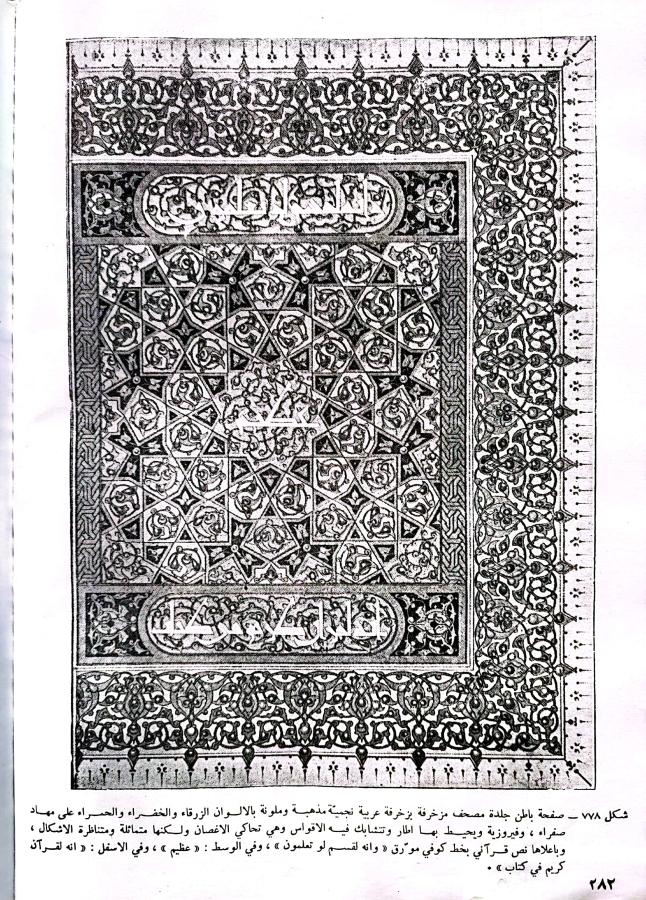 شكل ٧٧٨ ــ صفحة باطن جلدة مصحف مزخرفة بزخرفة عربية نجميّة مذهبة وملونة بالالوان الزرقاء والخضراء والحمراء على مهاد
صفراء ، وفيروزية ويحيط بها اطار وتتشابك فيه الاقواس وهي تحاكي الاغصان ولكنها متماثلة ومتناظرة الاشكال ،
وباعلاها نص قرآني بخط كوفي مورّق « وانه لقسم لو تعلمون » ، وفي الوسط : « عظيم » ، وفي الاسفل : « انه لقرآن
كريم في كتاب » ٠
٢٨٢